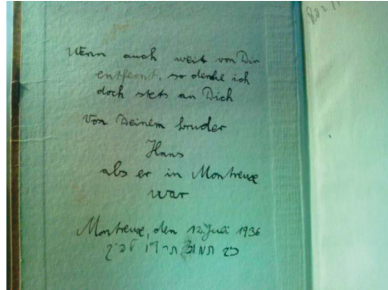 Wenn auch weit von Dir
entfernt, so denke ich
doch stets an Dich
Von Deinem Bruder
Hans
als er in Montreux
war
Montreux, den 12. Juli 1936
כ״ב תמוז תרצ״ו לפ״ק